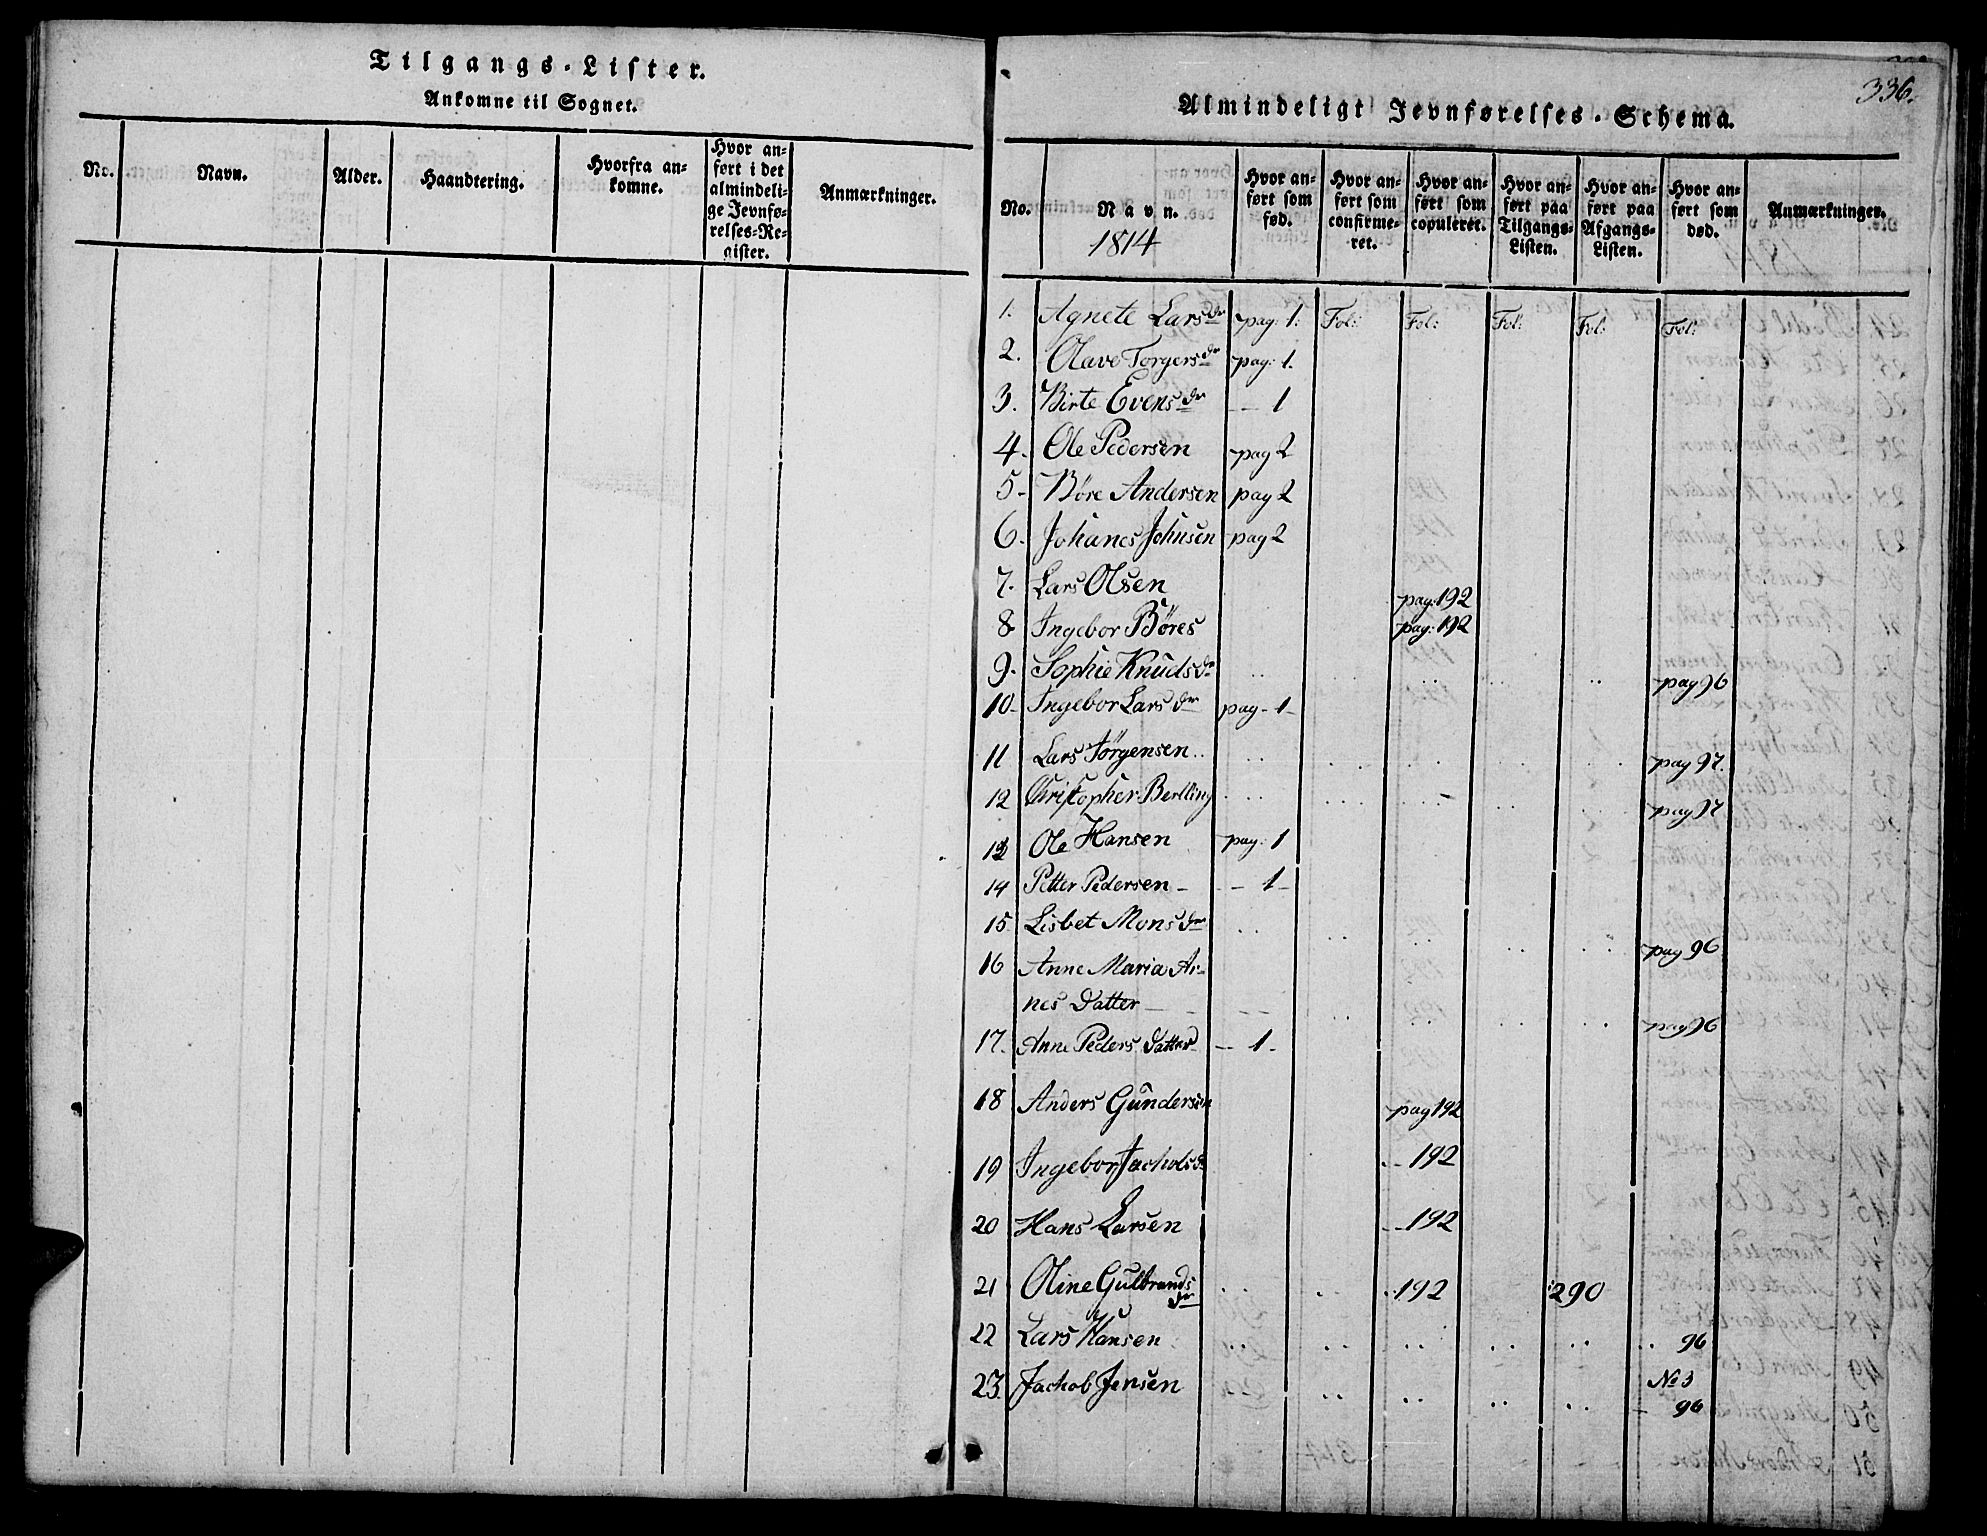 Tilgangs-Lister.
Ankomne til Sognet.
No. Navn. Alder. Haandtering. Hvorfra ankomne. Hvor anført i det almindelige Jevnførelses-Register. Anmærkninger.
336.
Almindeligt Jevnførelses-Schema.
No. Navn. Hvor anført som fød. Hvor anført som confirmeret. Hvor anført som copuleret. Hvor anført paa Tilgangs-Listen. Hvor anført paa Afgangs-Listen. Hvor anført som død. Anmærkninger.
1814
1. Agnete Larsdr pag: 1: Fol: Fol: Fol: Fol: Fol:
2. Olave Torgersdr pag: 1.
3. Birte Evensdr -- 1
4. Ole Pedersen pag 2
5- Böre Andersen pag 2
6. Johanes Johnsen pag 2
7. Lars Olsen pag: 192
8 Ingebor Böres pag: 192
9. Sophie Knudsdr pag 96
10- Ingebor Larsdr pag - 1 -
11 Lars Törgensen pag 97.
12 Christopher Bertling pag 97
13 Ole Hansen pag: 1
14 Petter Pedersen - -- 1 -
15. Lisbet Monsdr pag 96
16 Anne Maria Ar-
nes Datter pag 96
17. Anne Peders Datter -- 1 -
18 Anders Gundersen pag 192
19 Ingebor Jachobsdr -- 192
20 Hans Larsen -- 192
21 Oline Gulbrandsdr 192 290
22 Lars Hansen 96
23. Jachob Jensen No 3
96